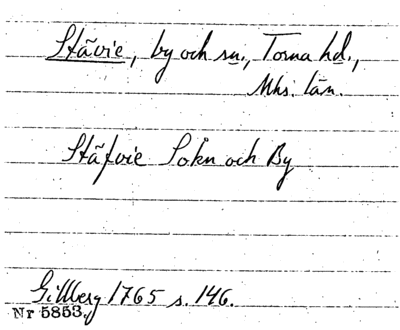 Stãvie, by och sn., Torna hd.,
Mhs. län.
Stãfvie Sokn och By
Gillberg 1765 s. 146.
Nr 5853.